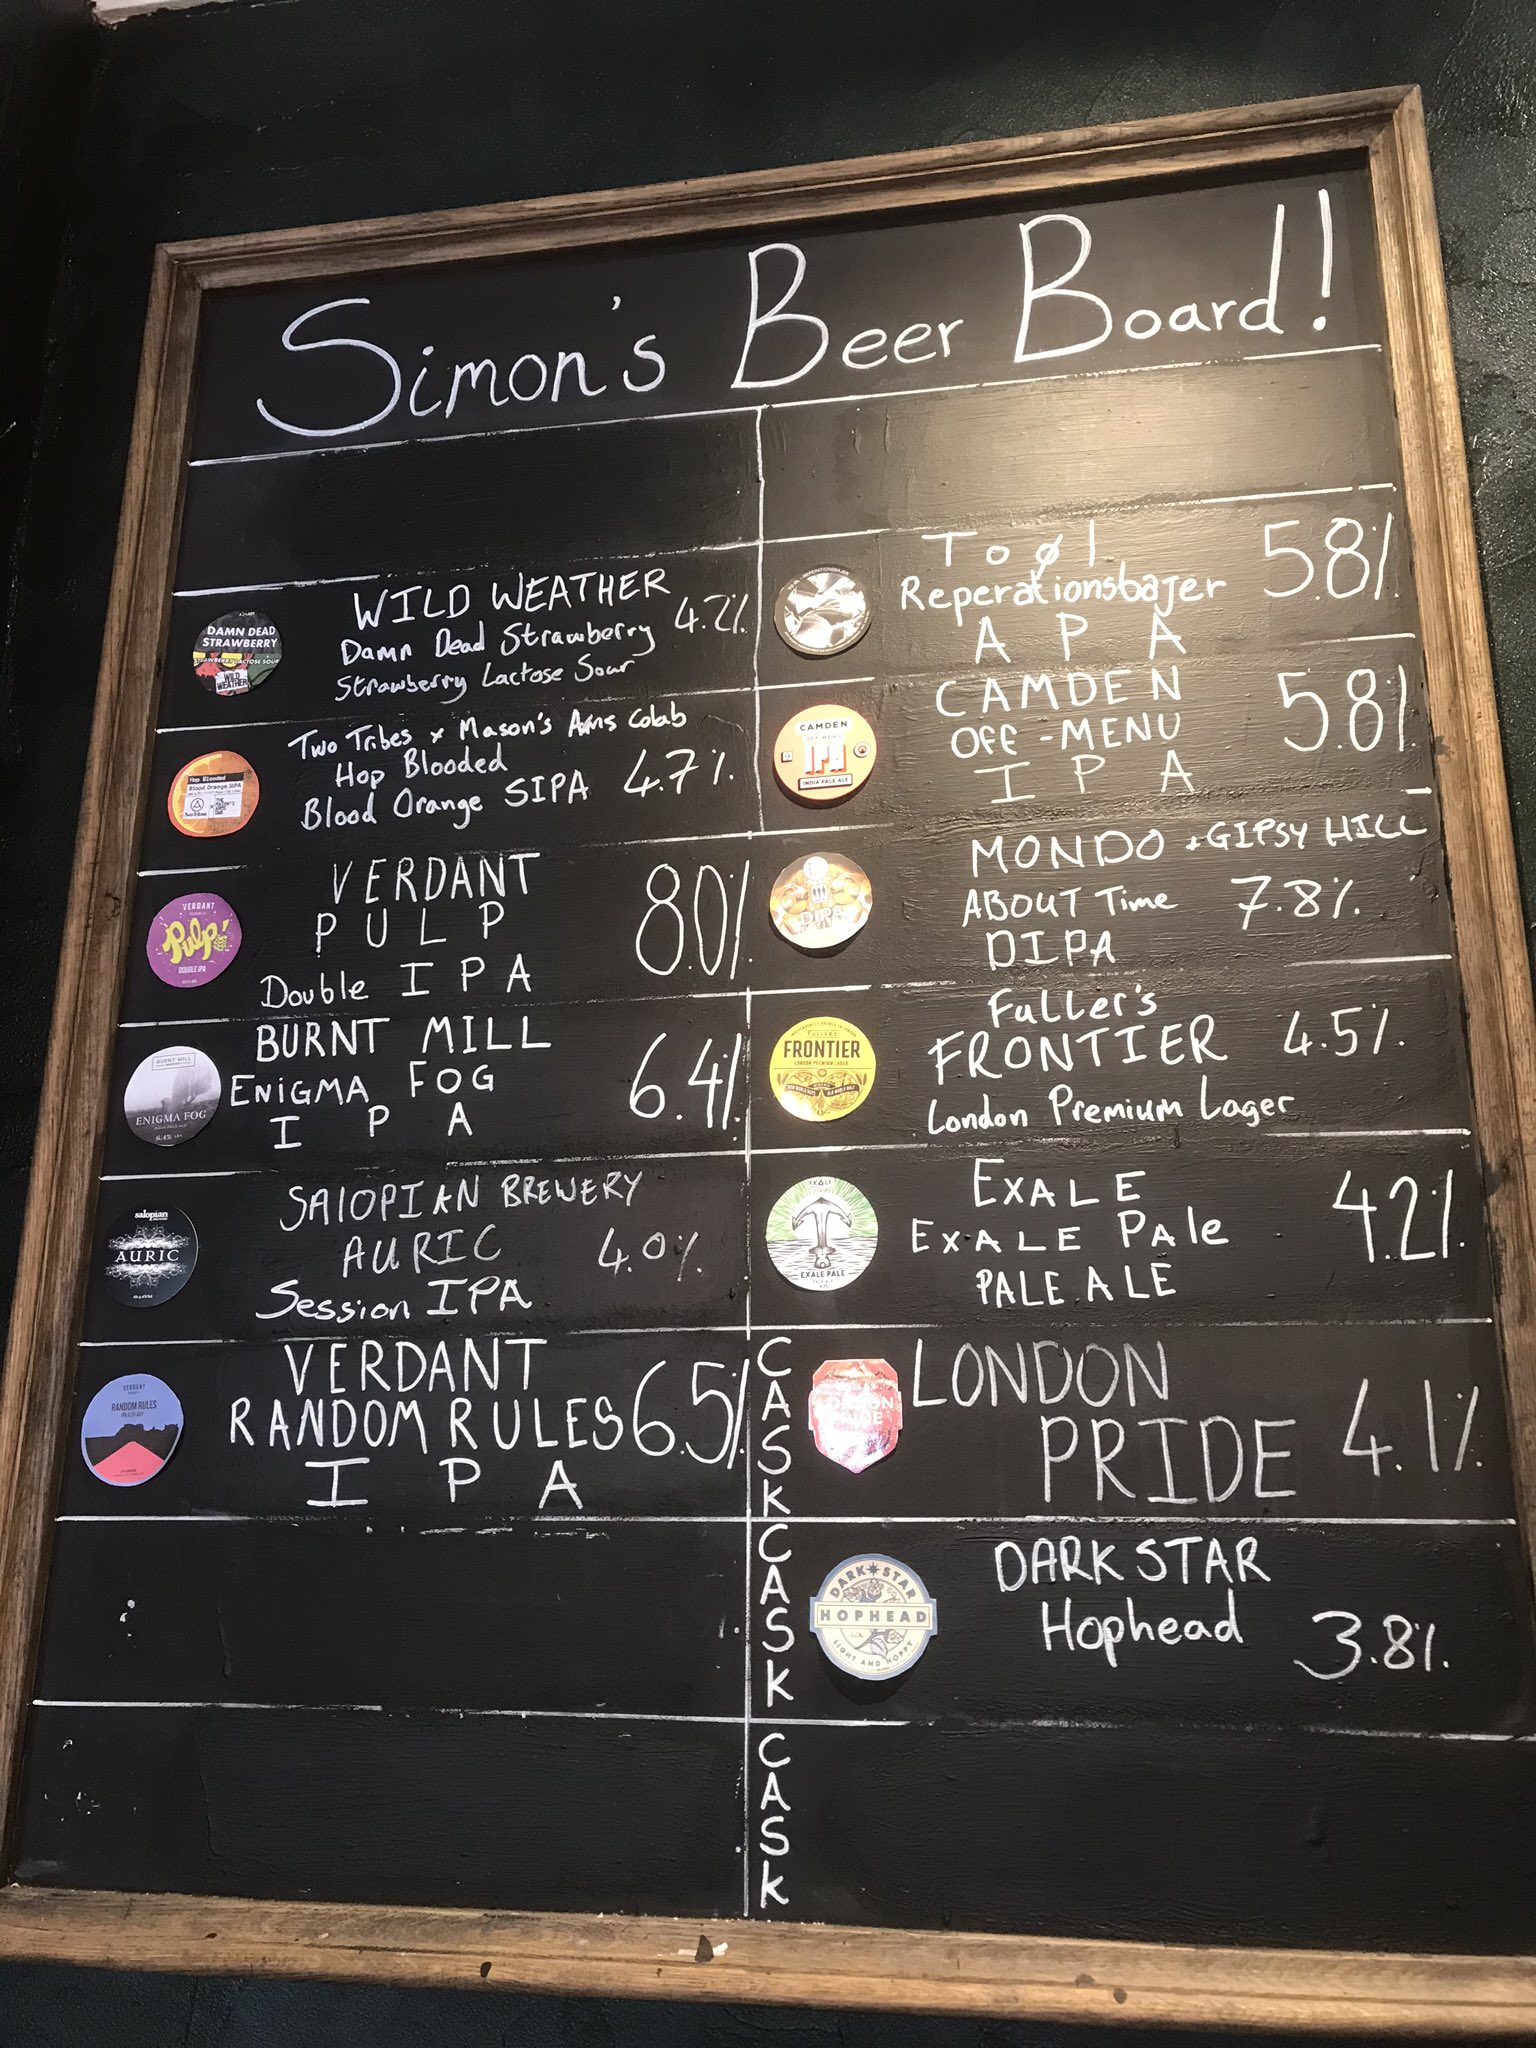 Simon's Beer Board!
WILD WEATHER
Damn Dead Strawberry 4.2%
Strawberry Lactose Sour
DAMN DEAD
STRAWBERRY
STRAWBERRY LACTOSE SOUR
WILD
WEATHER
Two Tribes x Mason's Arms Colab
Hop Blooded
Blood Orange SIPA 4.7%
Hop Blooded
Blood Orange SIPA
VERDANT
PULP 8.0%
Double IPA
VERDANT
Pulp!
DOUBLE IPA
BURNT MILL
ENIGMA FOG 6.4%
IPA
BURNT MILL
ENIGMA FOG
INDIA PALE ALE
6.4%
SALOPIAN BREWERY
AURIC 4.0%
Session IPA
salopian
AURIC
VERDANT
RANDOM RULES 6.5%
IPA
VERDANT
RANDOM RULES
To øl 5.8%
Reperationsbajer
APA
REPERATIONSBAJER
CAMDEN 5.8%
OFF-MENU
IPA
CAMDEN
OFF-MENU
IPA
INDIA PALE ALE
MONDO + GIPSY HILL
ABOUT Time 7.8%
DIPA
DIPA
Fuller's
FRONTIER 4.5%
London Premium Lager
FULLER'S
FRONTIER
LONDON PREMIUM LAGER
EXALE
EXALE Pale 4.2%
PALE ALE
EXALE
EXALE PALE
PALE ALE
CASK
LONDON
PRIDE 4.1%
LONDON
PRIDE
CASK
DARK STAR
Hophead 3.8%
DARK STAR
HOPHEAD
LIGHT AND HOPPY
CASK